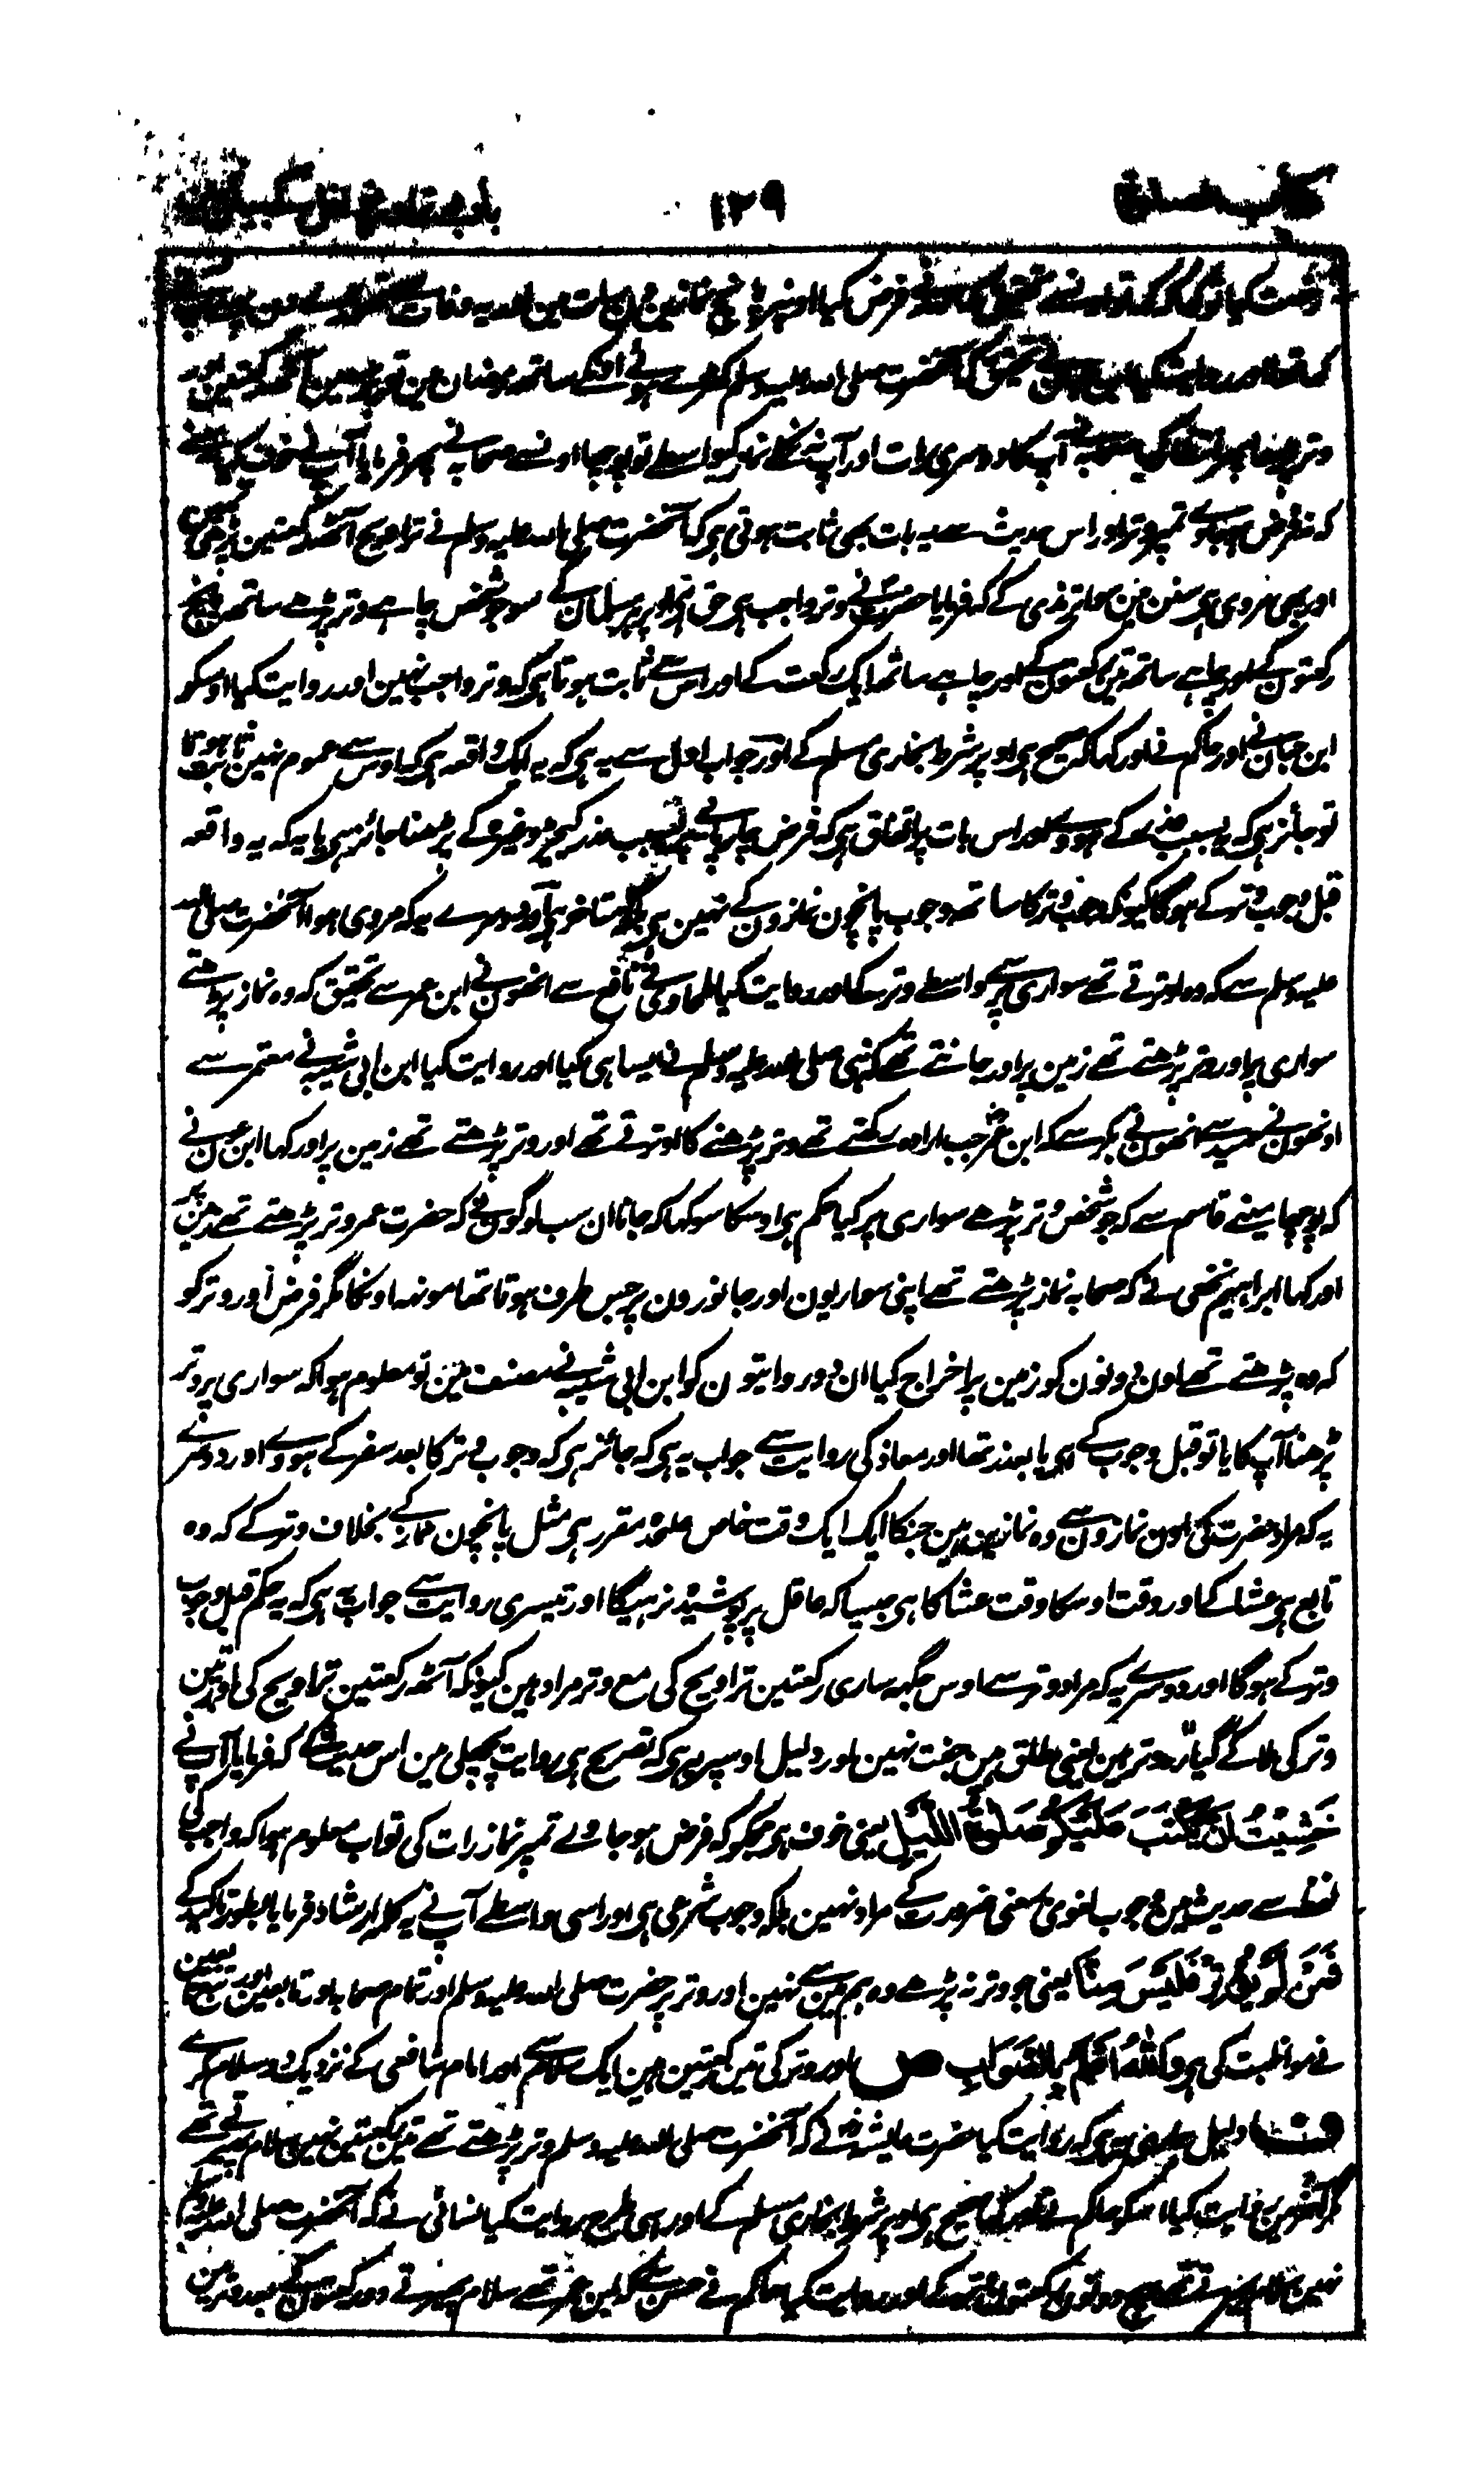 کتاب الصلوٰة ۱۲۹ باب
فرض کیا اونپر پانچ نمازین دن رات مین اور یہ وفات سے
آنحضرت صلی اللہ علیہ وسلم کھڑے ہوئے اونکے ساتھ رمضان مین تو پڑھین آٹھ رکعتین اور
وتر پڑھا پھر انتظار کیا صحابہ نے آپ کا دوسری رات اور آپ نہ نکلے نماز کیواسطے تو پوچھا اونسے صحابہ نے پھر فرمایا آپ نے خوف کیا مینے
کہ فرض ہو جاوے تمپر وتر اور اس حدیث سے یہ بات بھی ثابت ہوتی ہی کہ آنحضرت صلی اللہ علیہ وسلم نے تراویح آٹھ رکعتین پڑھی ہین
اور بھی مروی ہی سنن مین سوا ترمذی کے کہ فرمایا حضرت نے وتر واجب ہی حق ہی اوپر ہر مسلمان کے سو جو شخص چاہے وتر پڑھے ساتھ پانچ
رکعتون کے اور چاہے ساتھ تین رکعتون کے اور چاہے ساتھ ایک رکعت کے اور اس سے ثابت ہوتا ہی کہ وتر واجب نہین اور روایت کیا اوسکو
ابن حبان نے اور حاکم نے اور کہا کہ صحیح ہی اوپر شرط بخاری مسلم کے اور جواب اول سے یہ ہی کہ یہ ایک واقعہ ہی کہ اوس سے عموم نہین ثابت ہوتا
تو جائز ہی کہ یہ بسبب عذر کے ہووے اور اس بات پر اتفاق ہی کہ فرض چارپائے پر بسبب عذر کیچڑ وغیرہ کے پڑھنا جائز ہی یا یہ کہ یہ واقعہ
قبل وجوب وتر کے ہوگا کیونکہ وجوب وتر کا ساتھ وجوب پانچون نمازون کے نہین ہی بلکہ متاخر ہی اور دوسرے یہ کہ مروی ہوا آنحضرت صلی اللہ
علیہ وسلم سے کہ وہ اوترتے تھے سواری پر سے واسطے وتر کے اور روایت کیا طحاوی نے نافع سے انھون نے ابن عمر سے تحقیق کہ وہ نماز پڑھتے
سواری پر اور وتر پڑھتے تھے زمین پر اور جانتے تھے کہ نبی صلی اللہ علیہ وسلم نے ایسا ہی کیا اور روایت کیا ابن ابی شیبہ نے معتمر سے
اونھون نے حمید سے انھون نے بکر سے کہ ابن عمر جب ارادہ رکھتے تھے وتر پڑھنے کا اوترتے تھے اور وتر پڑھتے تھے زمین پر اور کہا ابن عون نے
کہ پوچھا مینے قاسم سے کہ جو شخص وتر پڑھے سواری پر کیا حکم ہی اوسکا سو کہا کہ جانا ان سب لوگون نے کہ حضرت عمر وتر پڑھتے تھے زمین پر
اور کہا ابراہیم نخعی نے کہ صحابہ نماز پڑھتے تھے اپنی سواریون اور جانورون پر جس طرف ہوتا تھا مونہہ اونکا مگر فرض اور وتر کو
کہ وہ پڑھتے تھے اون دونون کو زمین پر اخراج کیا ان دو روایتون کو ابن ابی شیبہ نے مصنف مین تو معلوم ہوا کہ سواری پر وتر
پڑھنا آپ کا یا تو قبل وجوب کے ہی یا بعذر تھا اور معاذ کی روایت سے جواب یہ ہی کہ جائز ہی کہ وجوب وتر کا بعد سفر کے ہووے اور دوسرے
یہ کہ مراد حضرت کی اون نمازون سے وہ نمازین ہین جنکا ایک ایک وقت خاص علیحدہ مقرر ہی مثل پانچون نماز کے بخلاف وتر کے کہ وہ
تابع ہی عشا کے اور وقت اوسکا وقت عشا کا ہی جیسا کہ عاقل پر پوشیدہ نرہیگا اور تیسری روایت سے جواب یہ ہی کہ یہ حکم قبل وجوب
وتر کے ہوگا اور دوسرے یہ کہ مراد وتر سے اوس جگہہ ساری رکعتین تراویح کی مع وتر مراد ہین کیونکہ آٹھ رکعتین تراویح کی اور تین
وتر کی ملا کے گیارہ وتر ہین یعنی طاق ہین جفت نہین اور دلیل اوسپر یہ ہی کہ تصریح ہی روایت پچھلی مین اس حدیث کے کہ فرمایا آپ نے
خَشِیْتُ اَنْ یُّکْتَبَ عَلَیْکُمْ صَلٰوةُ اللَّیْلِ یعنی خوف ہی مجھکو کہ فرض ہو جاوے تمپر نماز رات کی تو اب معلوم ہوا کہ واجب کی
لفظ سے حدیث مین وجوب لغوی بمعنی ضرورت کے مراد نہین بلکہ وجوب شرعی ہی اور اسی واسطے آپ نے یہ کلمہ ارشاد فرمایا بطور تاکید کے
فَمَنْ لَّمْ یُوْتِرْ فَلَیْسَ مِنَّا یعنی جو وتر نہ پڑھے وہ ہم مین سے نہین اور وتر پر حضرت صلی اللہ علیہ وسلم اور تمام صحابہ اور تابعین اور تبع تابعین
نے مواظبت کی ہی وَاللّٰهُ اَعْلَمُ بِالصَّوَابِ ص اور وتر کی تین رکعتین ہین ایک سلام سے اور امام شافعی کے نزدیک دو سلام کر کے
ف دلیل ہماری یہ ہی کہ روایت کیا حضرت عایشہ نے کہ آنحضرت صلی اللہ علیہ وسلم وتر پڑھتے تھے تین رکعتین نہین سلام پھیرتے تھے
مگر آخر مین روایت کیا اسکو حاکم نے اور کہا صحیح ہی اوپر شرط بخاری مسلم کے اور اسی طرح روایت کیا نسائی نے کہ آنحضرت صلی اللہ علیہ وسلم
نہین سلام پھیرتے تھے بیچ دونون رکعتون وتر کے اور روایت کیا حاکم نے حسن سے کہ ابن عمر تھے سلام پھیرتے دو رکعتون کے بعد وتر مین